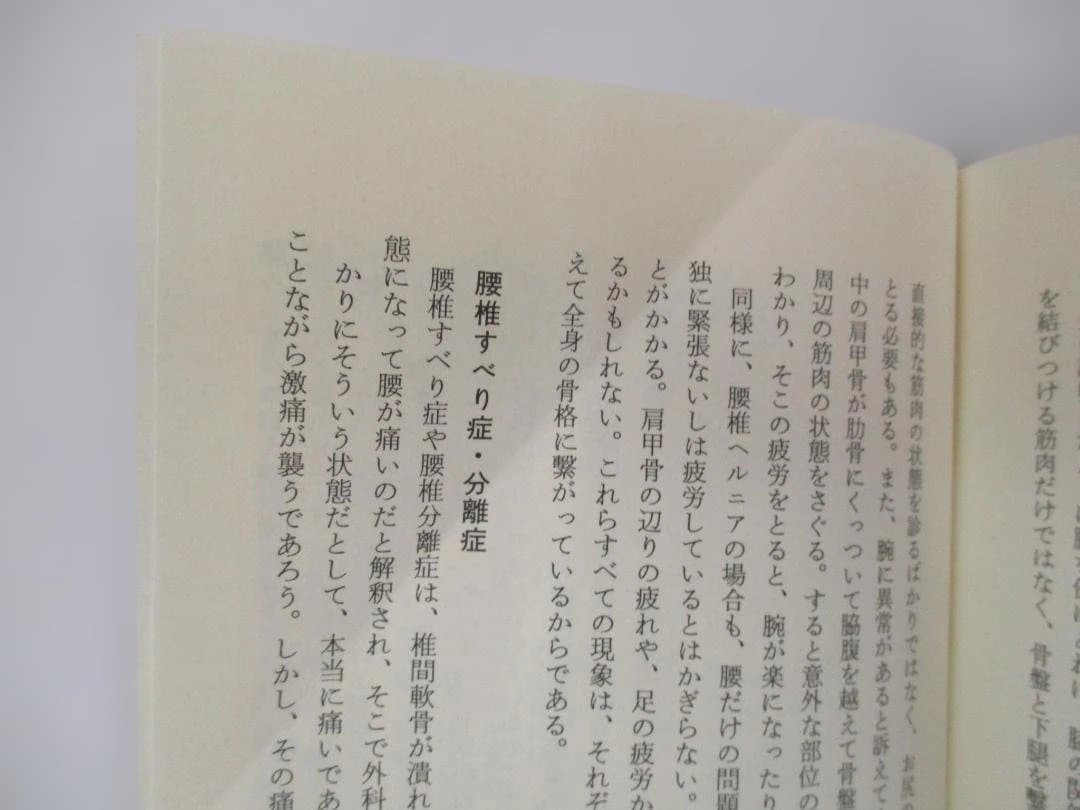 を結びつける筋肉だけではなく、骨盤と下腿を
直接的な筋肉の状態を診るばかりではなく、お尻
とる必要もある。また、腕に異常があると訴えて
中の肩甲骨が肋骨にくっついて脇腹を越えて骨盤
周辺の筋肉の状態をさぐる。すると意外な部位の
わかり、そこの疲労をとると、腕が楽になったり
同様に、腰椎ヘルニアの場合も、腰だけの問題
独に緊張ないしは疲労しているとはかぎらない。
とがかかる。肩甲骨の辺りの疲れや、足の疲労か
るかもしれない。これらすべての現象は、それぞ
えて全身の骨格に繋がっているからである。
腰椎すべり症・分離症
腰椎すべり症や腰椎分離症は、椎間軟骨が潰れ
態になって腰が痛いのだと解釈され、そこで外科
かりにそういう状態だとして、本当に痛いであ
ことながら激痛が襲うであろう。しかし、その痛